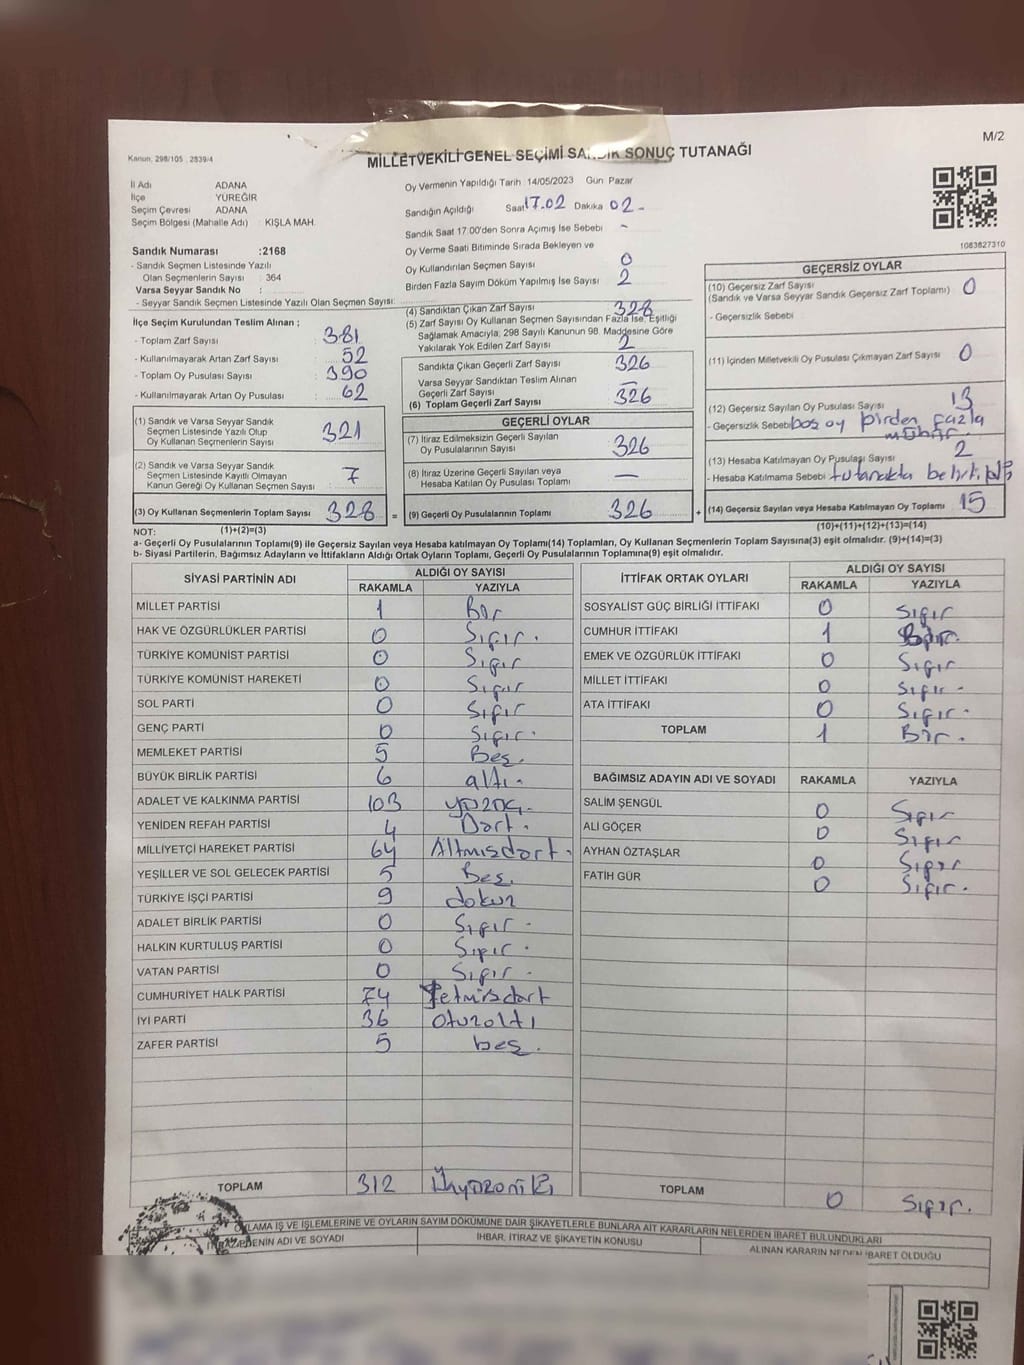 M/2
Kanun, 298/105 , 2839/4
MİLLETVEKİLİ GENEL SEÇİMİ SANDIK SONUÇ TUTANAĞI
İl Adı ADANA
İlçe YÜREĞİR
Seçim Çevresi ADANA
Seçim Bölgesi (Mahalle Adı) : KIŞLA MAH.
Oy Vermenin Yapıldığı Tarih 14/05/2023 Gün Pazar
Sandığın Açıldığı Saat 17.02 Dakika 02 -
Sandık Saat 17:00'den Sonra Açımış İse Sebebi -
Oy Verme Saati Bitiminde Sırada Bekleyen ve
Oy Kullandırılan Seçmen Sayısı 0
Birden Fazla Sayım Döküm Yapılmış İse Sayısı 2
1083827310
Sandık Numarası :2168
- Sandık Seçmen Listesinde Yazılı
Olan Seçmenlerin Sayısı : 364
Varsa Seyyar Sandık No :
- Seyyar Sandık Seçmen Listesinde Yazılı Olan Seçmen Sayısı:
İlçe Seçim Kurulundan Teslim Alınan ;
- Toplam Zarf Sayısı : 381
- Kullanılmayarak Artan Zarf Sayısı : 52
- Toplam Oy Pusulası Sayısı : 390
- Kullanılmayarak Artan Oy Pusulası : 62
(1) Sandık ve Varsa Seyyar Sandık
Seçmen Listesinde Yazılı Olup
Oy Kullanan Seçmenlerin Sayısı : 321
(2) Sandık ve Varsa Seyyar Sandık
Seçmen Listesinde Kayıtlı Olmayan
Kanun Gereği Oy Kullanan Seçmen Sayısı : 7
(3) Oy Kullanan Seçmenlerin Toplam Sayısı : 328
(4) Sandıktan Çıkan Zarf Sayısı 328
(5) Zarf Sayısı Oy Kullanan Seçmen Sayısından Fazla İse, Eşitliği
Sağlamak Amacıyla, 298 Sayılı Kanunun 98. Maddesine Göre
Yakılarak Yok Edilen Zarf Sayısı 2
Sandıkta Çıkan Geçerli Zarf Sayısı 326
Varsa Seyyar Sandıktan Teslim Alınan
Geçerli Zarf Sayısı —
(6) Toplam Geçerli Zarf Sayısı 326
GEÇERLİ OYLAR
(7) İtiraz Edilmeksizin Geçerli Sayılan
Oy Pusulasının Sayısı 326
(8) İtiraz Üzerine Geçerli Sayılan veya
Hesaba Katılan Oy Pusulası Toplamı —
= (9) Geçerli Oy Pusulalarının Toplamı 326
GEÇERSİZ OYLAR
(10) Geçersiz Zarf Sayısı
(Sandık ve Varsa Seyyar Sandık Geçersiz Zarf Toplamı) 0
- Geçersizlik Sebebi
(11) İçinden Milletvekili Oy Pusulası Çıkmayan Zarf Sayısı 0
(12) Geçersiz Sayılan Oy Pusulası Sayısı 13
- Geçersizlik Sebebi boş oy birden fazla
mühür
(13) Hesaba Katılmayan Oy Pusulası Sayısı 2
- Hesaba Katılmama Sebebi tutanakta
+ (14) Geçersiz Sayılan veya Hesaba Katılmayan Oy Toplamı 15
NOT: (1)+(2)=(3)
(10)+(11)+(12)+(13)=(14)
a- Geçerli Oy Pusulalarının Toplamı(9) ile Geçersiz Sayılan veya Hesaba katılmayan Oy Toplamı(14) Toplamları, Oy Kullanan Seçmenlerin Toplam Sayısına(3) eşit olmalıdır. (9)+(14)=(3)
b- Siyasi Partilerin, Bağımsız Adayların ve İttifakların Aldığı Ortak Oyların Toplamı, Geçerli Oy Pusulalarının Toplamına(9) eşit olmalıdır.
SİYASİ PARTİNİN ADI
ALDIĞI OY SAYISI
RAKAMLA YAZIYLA
MİLLET PARTİSİ 1 Bir
HAK VE ÖZGÜRLÜKLER PARTİSİ 0 Sıfır.
TÜRKİYE KOMÜNİST PARTİSİ 0 Sıfır
TÜRKİYE KOMÜNİST HAREKETİ 0 Sıfır
SOL PARTİ 0 Sıfır
GENÇ PARTİ 0 Sıfır.
MEMLEKET PARTİSİ 5 Beş.
BÜYÜK BİRLİK PARTİSİ 6 altı.
ADALET VE KALKINMA PARTİSİ 103 yüzüç.
YENİDEN REFAH PARTİSİ 4 Dört.
MİLLİYETÇİ HAREKET PARTİSİ 64 Altmışdört.
YEŞİLLER VE SOL GELECEK PARTİSİ 5 Beş.
TÜRKİYE İŞÇİ PARTİSİ 9 dokuz
ADALET BİRLİK PARTİSİ 0 Sıfır.
HALKIN KURTULUŞ PARTİSİ 0 Sıfır.
VATAN PARTİSİ 0 Sıfır.
CUMHURİYET HALK PARTİSİ 74 Yetmişdört
İYİ PARTİ 36 Otuzaltı
ZAFER PARTİSİ 5 beş.
TOPLAM 312 Üçyüzoniki
İTTİFAK ORTAK OYLARI
ALDIĞI OY SAYISI
RAKAMLA YAZIYLA
SOSYALİST GÜÇ BİRLİĞİ İTTİFAKI 0 Sıfır
CUMHUR İTTİFAKI 1 Bir.
EMEK VE ÖZGÜRLÜK İTTİFAKI 0 Sıfır
MİLLET İTTİFAKI 0 Sıfır.
ATA İTTİFAKI 0 Sıfır.
TOPLAM 1 Bir.
BAĞIMSIZ ADAYIN ADI VE SOYADI RAKAMLA YAZIYLA
SALİM ŞENGÜL 0 Sıfır
ALİ GÖÇER 0 Sıfır
AYHAN ÖZTAŞLAR 0 Sıfır
FATİH GÜR 0 Sıfır.
TOPLAM 0 Sıfır.
OYLAMA İŞ VE İŞLEMLERİNE VE OYLARIN SAYIM DÖKÜMÜNE DAİR ŞİKAYETLERLE BUNLARA AİT KARARLARIN NELERDEN İBARET BULUNDUKLARI
İTİRAZ EDENİN ADI VE SOYADI
İHBAR, İTİRAZ VE ŞİKAYETİN KONUSU
ALINAN KARARIN NEDEN İBARET OLDUĞU